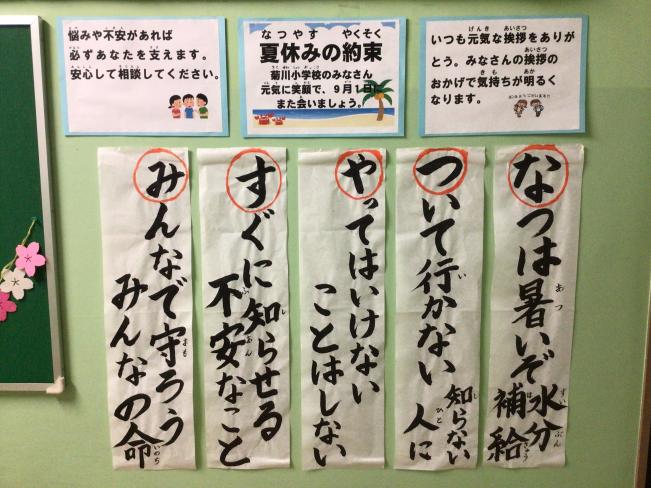 悩みや不安があれば
必ずあなたを支えます。
安心して相談してください。
なつやす やくそく
夏休みの約束
菊川小学校のみなさん
元気に笑顔で、９月１日に
また会いましょう。
いつも元気な挨拶をありが
とう。みなさんの挨拶の
おかげで気持ちが明るく
なります。
なつは暑いぞ
水分
補給
ついて行かない
知らない
人に
やってはいけない
ことはしない
すぐに知らせる
不安なこと
みんなで守ろう
みんなの命